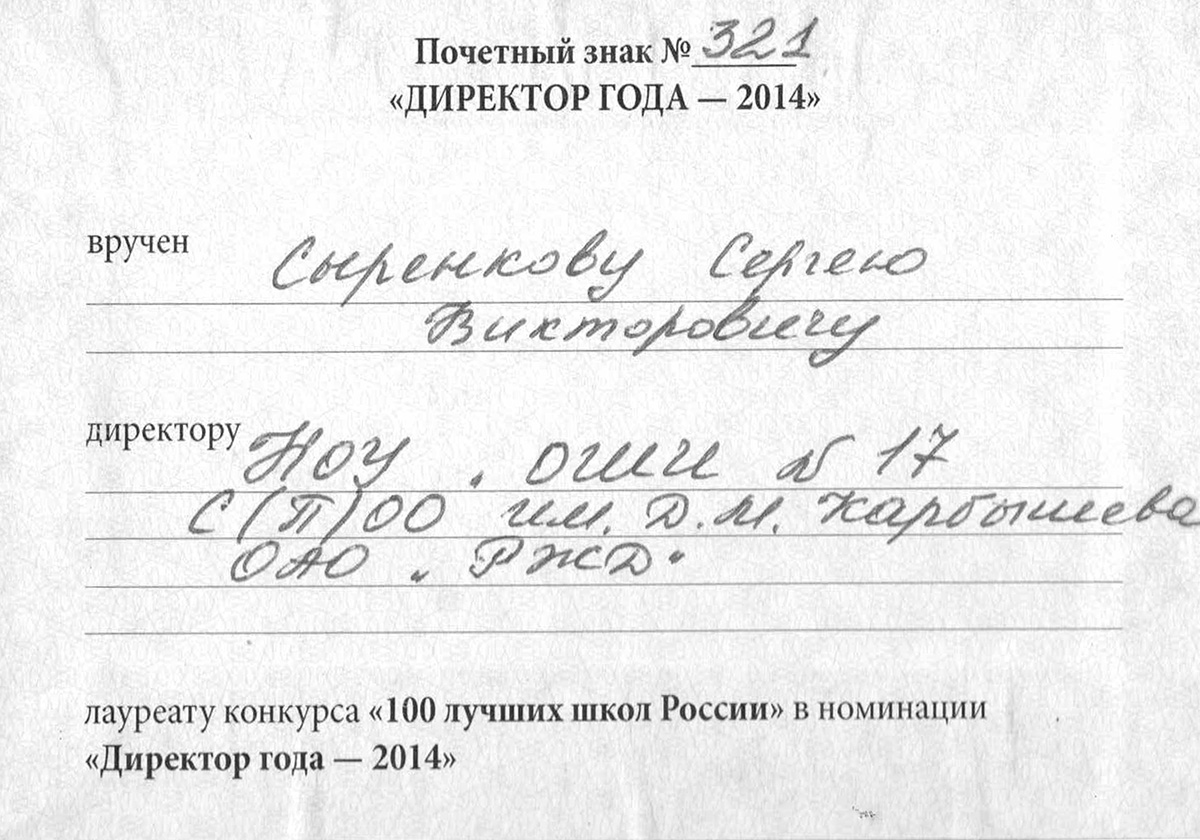 Почетный знак № 321
«ДИРЕКТОР ГОДА — 2014»
вручен Сыренкову Сергею
Викторовичу
директору НОУ „ ОШИ № 17
С(П)ОО им. Д.М. Карбышева
ОАО „ РЖД"
лауреату конкурса «100 лучших школ России» в номинации
«Директор года — 2014»